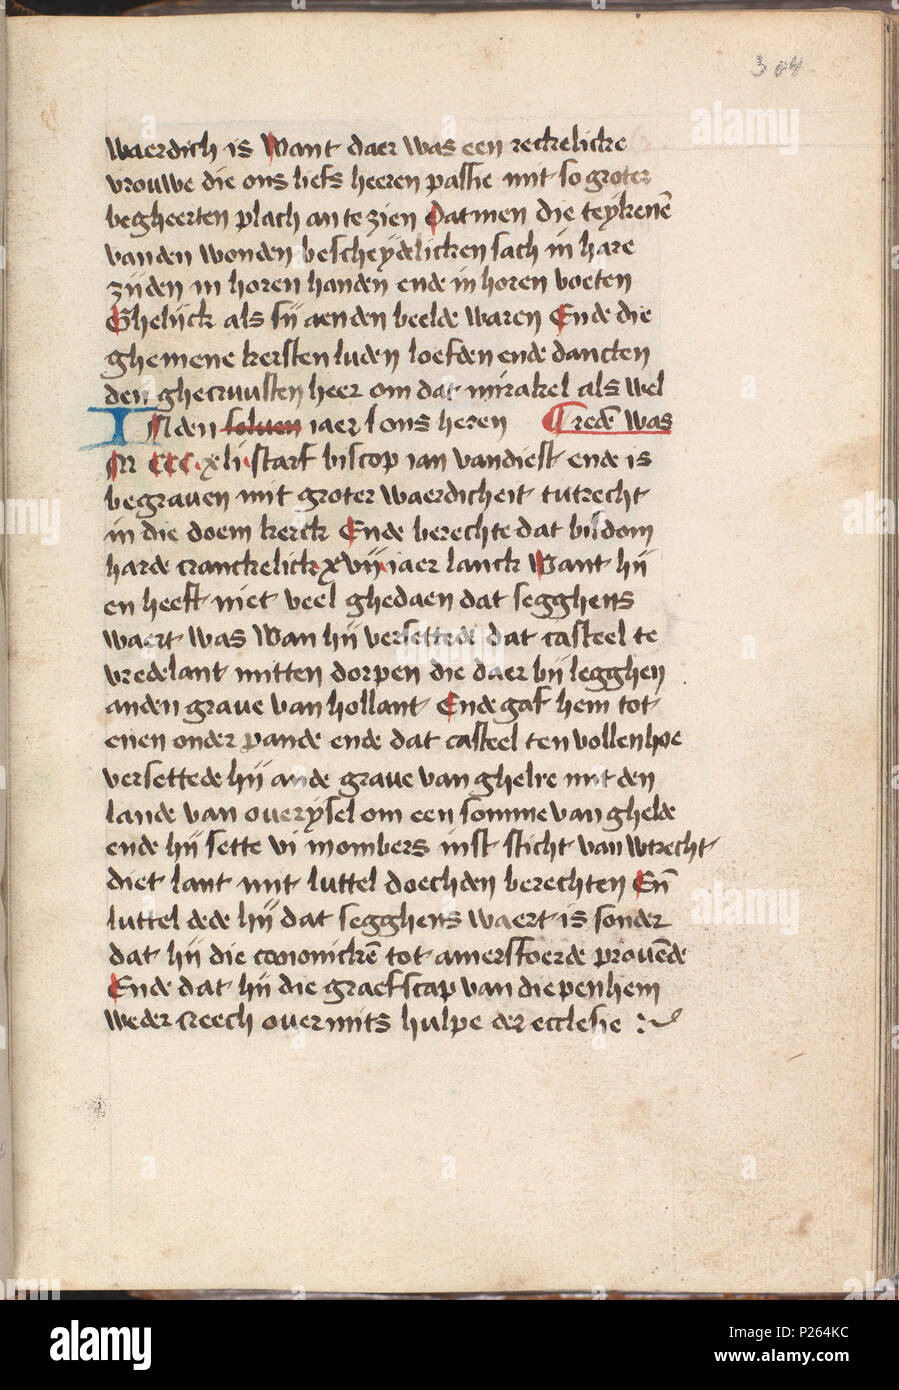 waerdich is Want daer was een reckelicke
vrouwe die ons liefs heeren passie mit so groter
begheerten plach an te zien Datmen die teykenē
van den wonden bescheydelicken sach in hare
zijden in horen handen ende in horen voeten
Ghelijck als sij aen den beelde waren Ende die
ghemene kersten luden loefden ende dancten
den ghecruusten heer om dat mirakel als wel
INden seluen iaer ons heren Tredē was
M CCC xli starf biscop ian van diest ende is
begrauen mit groter waerdicheit tutrecht
in die doem kerck Ende berechte dat bisdom
harde cranckelick xvij iaer lanck Want hij
en heeft niet veel ghedaen dat segghens
waert was Wan hij versettede dat casteel te
vredelant mitten dorpen die daer bij legghen
anden graue van hollant Ende gaf hem tot
enen onder pande ende dat casteel ten vollenhoe
versettede hij ande graue van ghelre mit den
lande van ouerysel om een somme van ghelde
ende hij sette vi mombers inst sticht van wtrecht
diet lant mit luttel doechden berechten Eñ
luttel dede hij dat segghens waert is sonder
dat hij die canonickē tot amersfoerde prouēde
Ende dat hij die graefscap van diepenhem
weder creech ouermits hulpe der ecclesie
alamy
P264KC
www.alamy.com